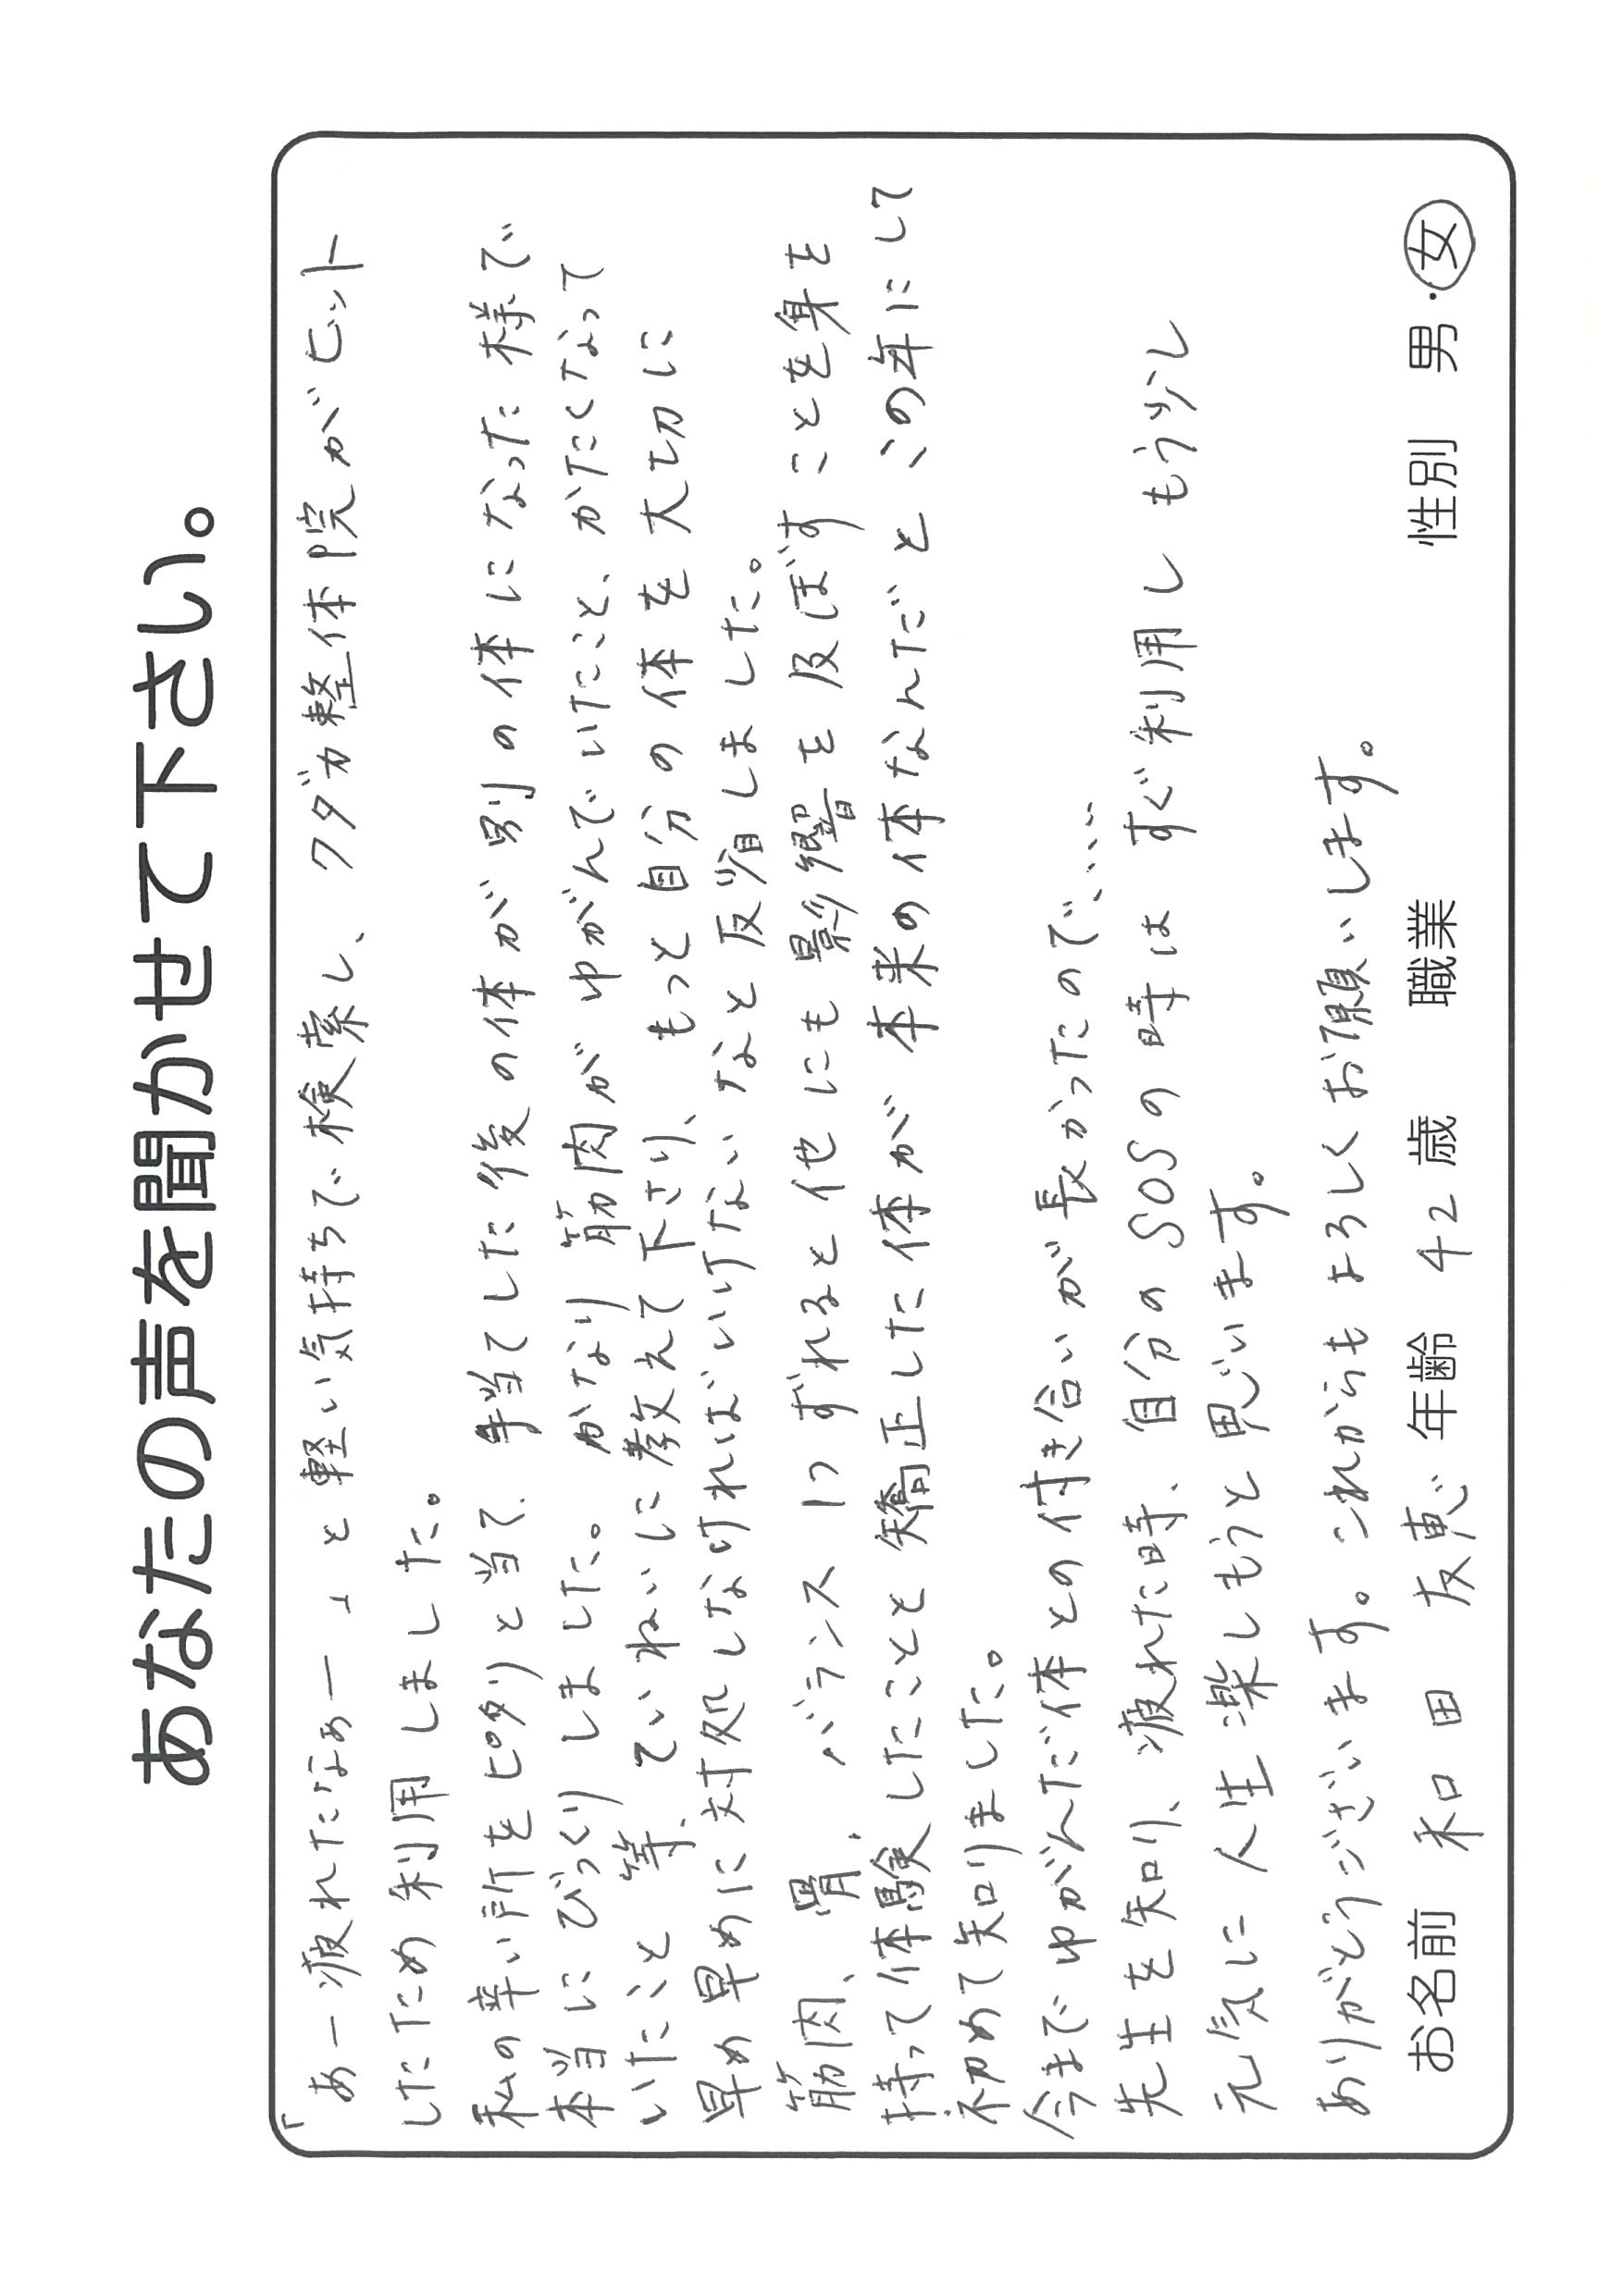 あなたの声を聞かせて下さい。
「あー疲れたなぁー」と軽い気持ちで検索し、クダカ整体院がヒット
したため利用しました。
私の辛い所をピタリと当て、手当てした後の体が別の体になった様で
本当にびっくりしました。かなり筋肉がゆがんでいたこと、かたくなって
いたこと等、ていねいに教えて下さり、もっと自分の体を大切に
早め早めに対処しなければいけないなと反省しました。
筋肉、骨、バランス1つずれると他にも影響を及ぼすことを身を
持って体験したことと矯正した体が本来の体なんだとこの年にして
初めて知りました。
今までゆがんだ体との付き合いが長かったので、、、、
先生を知り、疲れた時、自分のSOSの時はすぐ利用しもう少し
元気に人生楽しもうと思います。
ありがとうございます。これからもよろしくお願いします。
お名前 和田 友恵 年齢 42 歳 職業 性別 男・女